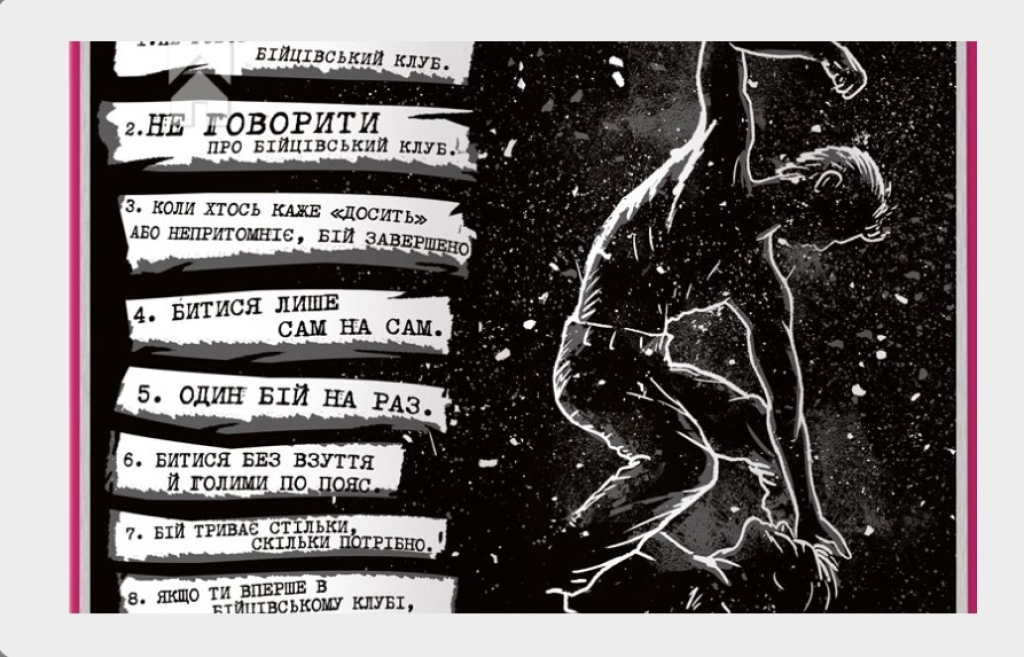 1.НЕ
БІЙЦІВСЬКИЙ КЛУБ.
2.НЕ ГОВОРИТИ
ПРО БІЙЦІВСЬКИЙ КЛУБ.
3. КОЛИ ХТОСЬ КАЖЕ «ДОСИТЬ»
АБО НЕПРИТОМНІЄ, БІЙ ЗАВЕРШЕНО
4. БИТИСЯ ЛИШЕ
САМ НА САМ.
5. ОДИН БІЙ НА РАЗ.
6. БИТИСЯ БЕЗ ВЗУТТЯ
Й ГОЛИМИ ПО ПОЯС.
7. БІЙ ТРИВАЄ СТІЛЬКИ,
СКІЛЬКИ ПОТРІБНО.
8. ЯКЩО ТИ ВПЕРШЕ В
БІЙЦІВСЬКОМУ КЛУБІ,